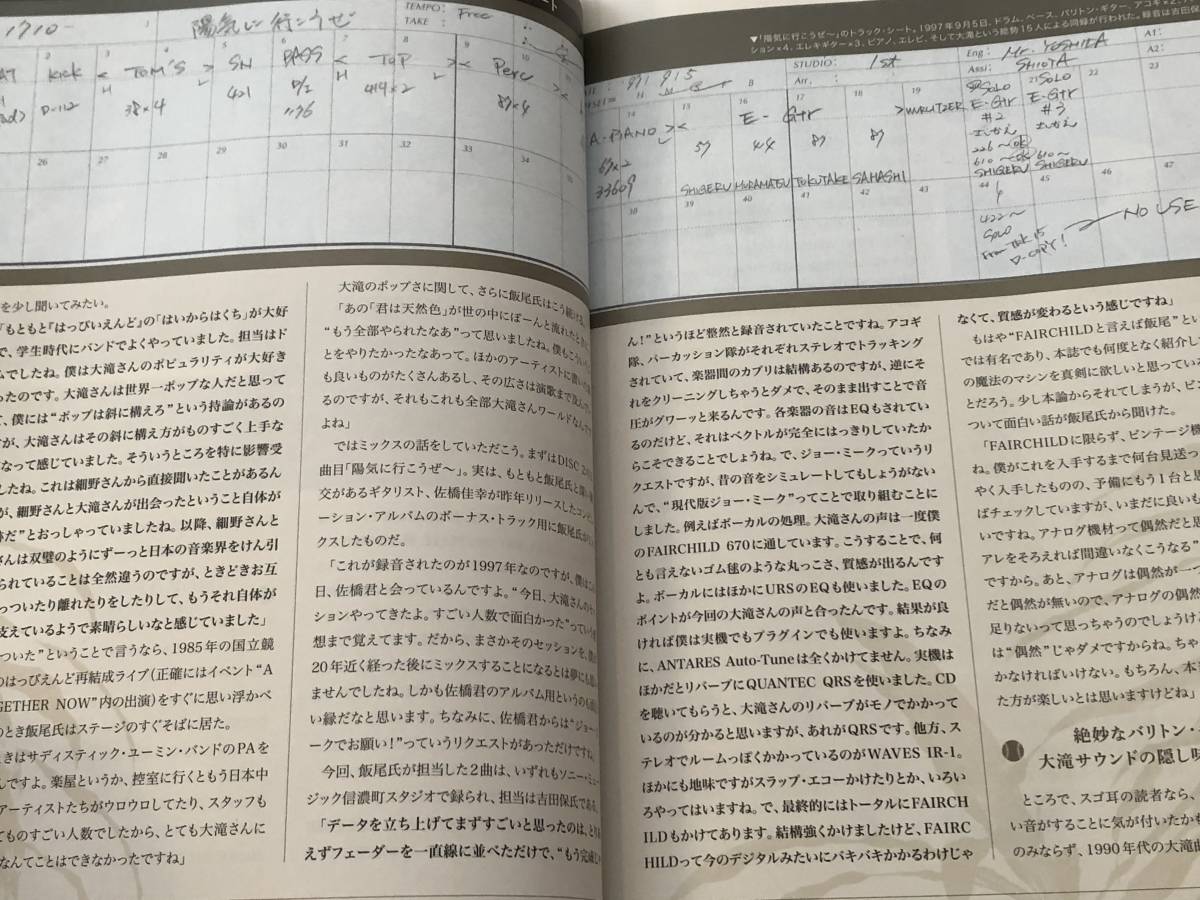 1710-
陽気に行こうぜ
TEMPO: Free
TAKE :
2 3 4 5 6 7 8 9 10
KICK < TOM'S > SN BASS < TOP > < Perc ><
H L D/I H L
D-112 38×4 421 1176 414×2 87×4
26 27 28 29 30 31 32 33 34
を少し聞いてみたい。
「もともと『はっぴいえんど』の「はいからはくち」が大好
で、学生時代にバンドでよくやっていました。担当はド
ムでしたね。僕は大滝さんのポピュラリティが大好き
ったのです。大滝さんは世界一ポップな人だと思って
て、僕には“ポップは斜に構えろ”という持論があるの
すが、大滝さんはその斜に構え方がものすごく上手な
なって感じていました。そういうところを特に影響受
したね。これは細野さんから直接聞いたことがあるん
が、細野さんと大滝さんが出会ったということ自体が
跡だ”とおっしゃっていましたね。以降、細野さんと
さんは双璧のようにずーっと日本の音楽界をけん引
られていることは全然違うのですが、ときどきお互
っついたり離れたりをしたりして、もうそれ自体が
支えているようで素晴らしいなと感じていました」
ついた”ということで言うなら、1985年の国立競
のはっぴいえんど再結成ライブ（正確にはイベント“A
GETHER NOW”内の出演）をすぐに思い浮かべ
のとき飯尾氏はステージのすぐそばに居た。
きはサディスティック・ユーミン・バンドのPAを
んですよ。楽屋というか、控室に行くともう日本中
アーティストたちがウロウロしてたり、スタッフも
てものすごい人数でしたから、とても大滝さんに
なんてことはできなかったですね」
大滝のポップさに関して、さらに飯尾氏はこう続ける。
「あの「君は天然色」が世の中にぽーんと流れたとき
“もう全部やられたなあ”って思いましたね。僕もこう
とをやりたかったなあって。ほかのアーティストに
も良いものがたくさんあるし、その広さは演歌まで
るのですが、それもこれも全部大滝さんワールドなんで
よね」
ではミックスの話をしていただこう。まずはDISC 2の
曲目「陽気に行こうぜ〜」。実は、もともと飯尾氏と
交があるギタリスト、佐橋佳幸が昨年リリースしたコンピ
ーション・アルバムのボーナス・トラック用に飯尾氏が
クスしたものだ。
「これが録音されたのが1997年なのですが、僕は
日、佐橋君と会っているんですよ。“今日、大滝さんの
ションやってきたよ。すごい人数で面白かった”っていう
想まで覚えてます。だから、まさかそのセッションを、
20年近く経った後にミックスすることになるとは夢にも
ませんでしたね。しかも佐橋君のアルバム用というのも
い縁だなと思います。ちなみに、佐橋君からは“ジョー・
ークでお願い！”っていうリクエストがあっただけですね
今回、飯尾氏が担当した2曲は、いずれもソニー・ミュー
ジック信濃町スタジオで録られ、担当は吉田保氏である。
「データを立ち上げてまずすごいと思ったのは、
えずフェーダーを一直線に並べただけで、“もう完成
▼「陽気に行こうぜ〜」のトラック・シート。1997年9月5日、ドラム、ベース、バリトン・ギター、アコギ×2、
ション×4、エレキギター×3、ピアノ、エレピ、そして大滝という総勢15人による同録が行われた。録音は吉田保
STUDIO: 1st
Arr. :
Eng : Mr. YOSHIDA
Assi: SHIOTA
A1:
A2:
14 15 16 17 18 19 21 22 23
A-PIANO >< E-Gtr > WURLITZER
SOLO SOLO
E-Gtr E-Gtr
#2 #3
さしかえ さしかえ
226〜OK
610〜OK 610〜
SHIGERU SHIGERU
87×2 57 44 87 87
33609
SHIGERU MURAMATSU TOKUTAKE SAHASHI
38 39 40 41 42 43 44 45 46 47
422〜
SOLO
From Tbk 15
D-copy!
NO USE
ん！”というほど整然と録音されていたことですね。アコギ
隊、パーカッション隊がそれぞれステレオでトラッキング
されていて、楽器間のカブリは結構あるのですが、逆にそ
れをクリーニングしちゃうとダメで、そのまま出すことで音
圧がグワーッと来るんです。各楽器の音はEQもされてい
るのだけど、それはベクトルが完全にはっきりしていたか
らこそできることでしょうね。で、ジョー・ミークっていうリ
クエストですが、昔の音をシミュレートしてもしょうがない
んで、“現代版ジョー・ミーク”ってことで取り組むことに
しました。例えばボーカルの処理。大滝さんの声は一度僕
のFAIRCHILD 670に通しています。こうすることで、何
とも言えないゴム毬のような丸っこさ、質感が出るんです
よ。ボーカルにはほかにURSのEQも使いました。EQの
ポイントが今回の大滝さんの声と合ったんです。結果が良
ければ僕は実機でもプラグインでも使いますよ。ちなみ
に、ANTARES Auto-Tuneは全くかけてません。実機は
ほかだとリバーブにQUANTEC QRSを使いました。CD
を聴いてもらうと、大滝さんのリバーブがモノでかかって
いるのが分かると思いますが、あれがQRSです。他方、ス
テレオでルームっぽくかかっているのがWAVES IR-1。
ほかにも地味ですがスラップ・エコーかけたりとか、いろい
ろやってはいますね。で、最終的にはトータルにFAIRCH
ILDもかけてあります。結構強くかけましたけど、FAIRC
HILDって今のデジタルみたいにバキバキかかるわけじゃ
なくて、質感が変わるという感じですね」
もはや“FAIRCHILDと言えば飯尾”とい
では有名であり、本誌でも何度となく紹介し
の魔法のマシンを真剣に欲しいと思ってい
とだろう。少し本論からそれてしまうが、ビン
ついて面白い話が飯尾氏から聞けた。
「FAIRCHILDに限らず、ビンテージ機
ね。僕がこれを入手するまで何台見送っ
やく入手したものの、予備にもう1台と思
ばチェックしていますが、いまだに良いも
いですね。アナログ機材って偶然だと思
アレをそろえれば間違いなくこうなる”
ですから。あと、アナログは偶然が一つ
だと偶然が無いので、アナログの偶然
足りないって思っちゃうのでしょうけど
は“偶然”じゃダメですからね。ちゃ
かなければいけない。もちろん、本
た方が楽しいとは思いますけどね」
絶妙なバリトン・
大滝サウンドの隠し味
ところで、スゴ耳の読者なら、
い音がすることに気が付いたかも
のみならず、1990年代の大滝曲